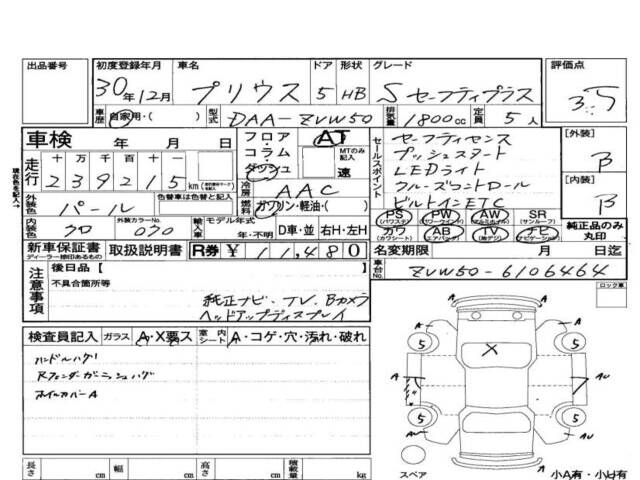 出品番号 初度登録年月 車名 ドア 形状 グレード 評価点
30年12月 プリウス 5 HB Sセーフティプラス 3.5
車歴 自家用・( ) 型式 DAA-ZVW50 排気量 1800cc 定員 5人
車検 年 月 日 フロア・コラム・ダッシュ AT MTのみ記入 速
セールスポイント
セーフティセンス
プッシュスタート
LEDライト
クルーズコントロール
ビルトインETC
[外装] B
[内装] B
現在色を記入→
走行 十 万 千 百 十 一
239215 km
冷房 AAC
外装色 パール 色替車は色替と記入 燃料 ガソリン・軽油・( )
PS (パワステ) PW (パワーウインド) AW (アルミホイル) SR (サンルーフ)
カワ (カワシート) AB (エアバッグ) TV (地デジ) ナビ (ナビゲーション)
純正品のみ丸印
内装色 クロ 外装カラーNo. 070 輸入車 モデル年式 年・不明 D車・並 右H・左H
新車保証書 ディーラー捺印あるもの 取扱説明書 R券 ¥11,480
名変期限 月 日迄
車台No. ZVW50-6106464
注意事項 後日品[ ]
不具合箇所等
純正ナビ、TV、Bカメラ
ヘッドアップディスプレイ
ロック車
検査員記入 ガラス A・X要ス 室内シート A・コゲ・穴・汚れ・破れ
ハンドルハゲ
Rフェンダーガーニッシュハゲ
ホイルカバーA
A A
5 5
X
A A AU
5 5
AU AU
スペア
小A有・小U有
長さ cm 幅 cm 高さ cm 積載量 kg